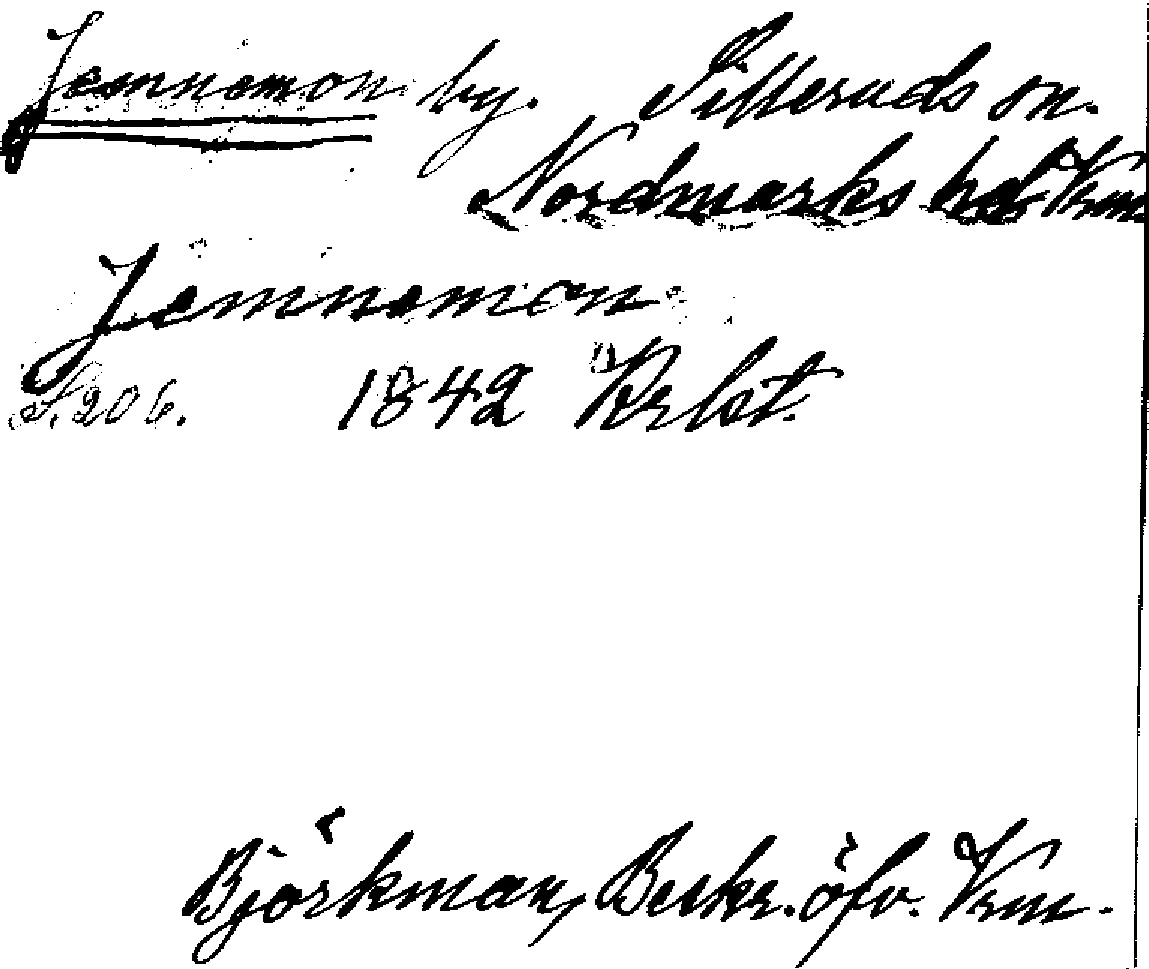 Jemnemon by. Silleruds sn.
Nordmarks hd Vrm
Jemnemon
S. 206. 1842 Krlst.
Björkman, Beskr. öfv. Vrm.